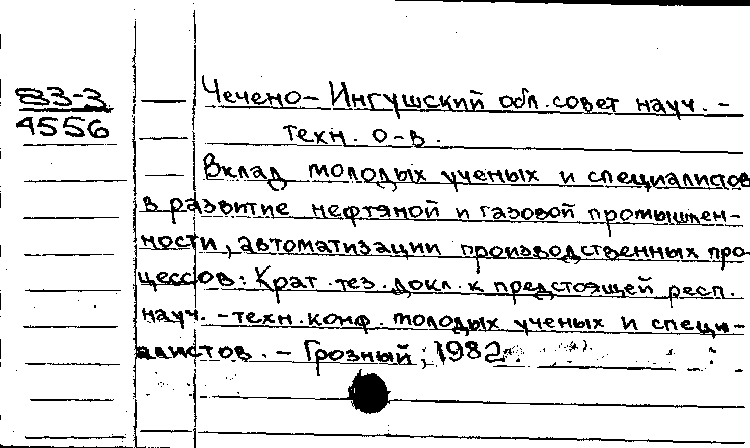 83-3
4556
Чечено-Ингушский обл. совет науч.-
техн. о-в.
Вклад молодых ученых и специалистов
в развитие нефтяной и газовой промышлен-
ности, автоматизации производственных про
цессов: Крат. тез. докл. к предстоящей респ.
науч.-техн. конф. молодых ученых и специ-
алистов. - Грозный, 1982